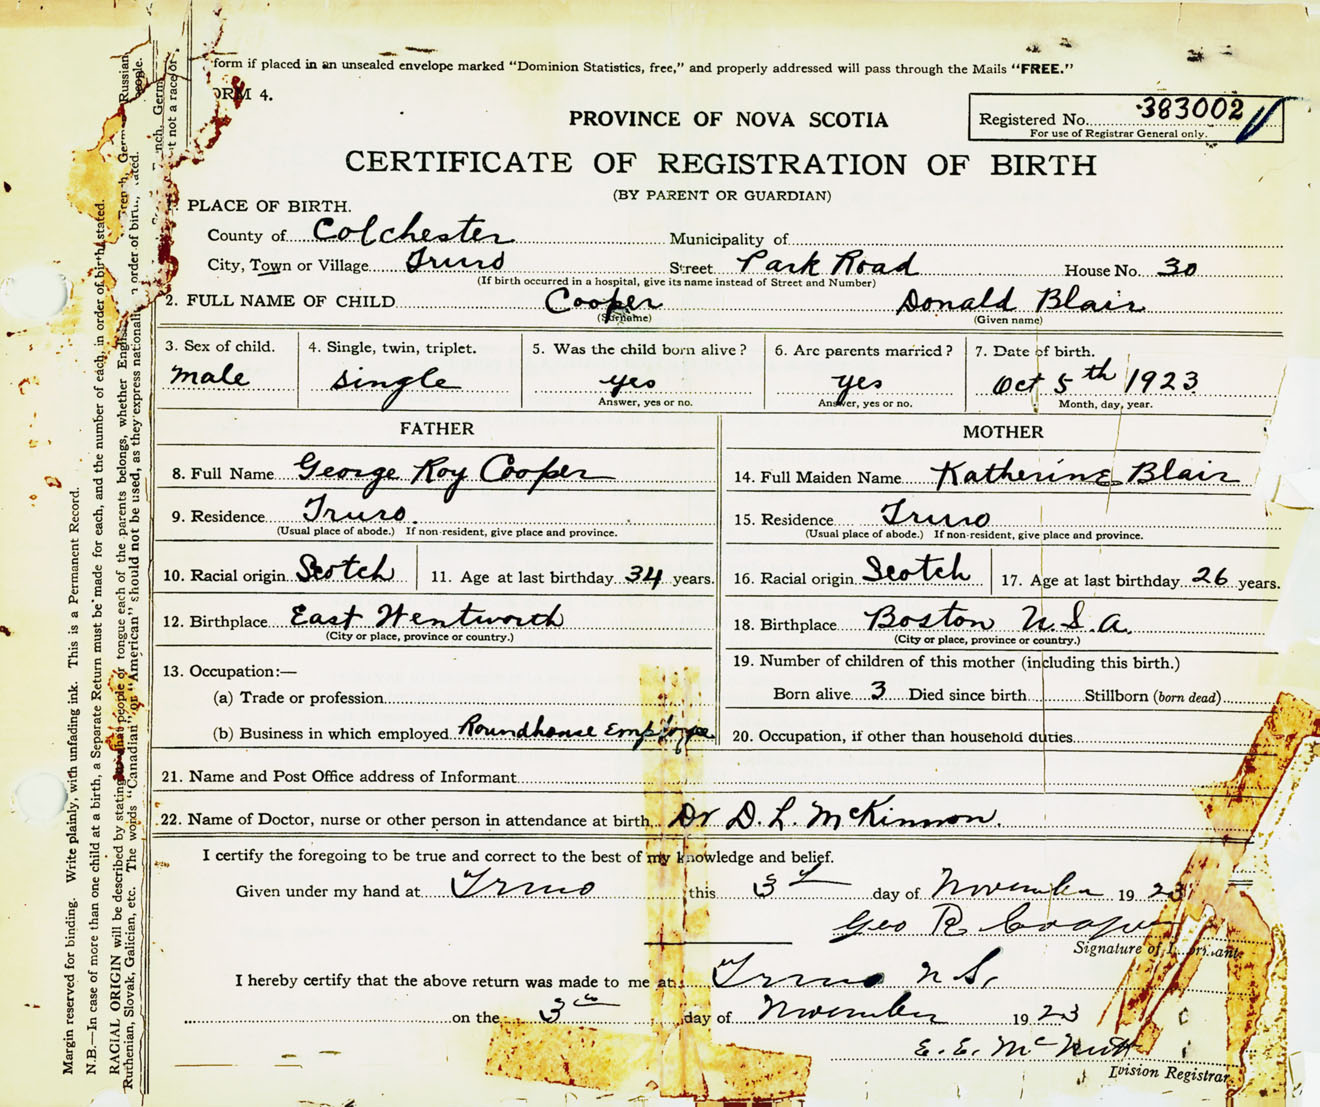 form if placed in an unsealed envelope marked "Dominion Statistics, free," and properly addressed will pass through the Mails "FREE."
ORM 4.
PROVINCE OF NOVA SCOTIA
Registered No. 383002
For use of Registrar General only.
CERTIFICATE OF REGISTRATION OF BIRTH
(BY PARENT OR GUARDIAN)
PLACE OF BIRTH.
County of Colchester Municipality of
City, Town or Village Truro Street Park Road House No. 30
(If birth occurred in a hospital, give its name instead of Street and Number)
2. FULL NAME OF CHILD Cooper Donald Blair
(Surname) (Given name)
3. Sex of child. 4. Single, twin, triplet. 5. Was the child born alive? 6. Are parents married? 7. Date of birth.
Male single yes yes Oct 5th 1923
Answer, yes or no. Answer, yes or no. Month, day, year.
FATHER MOTHER
8. Full Name George Roy Cooper 14. Full Maiden Name Katherine Blair
9. Residence Truro. 15. Residence Truro
(Usual place of abode.) If non-resident, give place and province. (Usual place of abode.) If non-resident, give place and province.
10. Racial origin Scotch 11. Age at last birthday 34 years. 16. Racial origin Scotch 17. Age at last birthday 26 years.
12. Birthplace East Wentworth 18. Birthplace Boston U.S.A.
(City or place, province or country.) (City or place, province or country.)
13. Occupation:— 19. Number of children of this mother (including this birth.)
(a) Trade or profession Born alive 3 Died since birth Stillborn (born dead)
(b) Business in which employed Roundhouse Employee 20. Occupation, if other than household duties
21. Name and Post Office address of Informant
22. Name of Doctor, nurse or other person in attendance at birth Dr D. L. McKinnon.
I certify the foregoing to be true and correct to the best of my knowledge and belief.
Given under my hand at Truro this 3d day of November 1923
Geo R. Cooper
Signature of Informant.
I hereby certify that the above return was made to me at Truro N.S.
on the 3rd day of November 1923
E. E. McNutt
Division Registrar
Margin reserved for binding. Write plainly, with unfading ink. This is a Permanent Record.
N.B.—In case of more than one child at a birth, a Separate Return must be made for each, and the number of each, in order of birth, stated.
RACIAL ORIGIN will be described by stating to what people or tongue each of the parents belongs, whether English, French, German, Russian,
Ruthenian, Slovak, Galician, etc. The words "Canadian" or "American" should not be used, as they express nationality